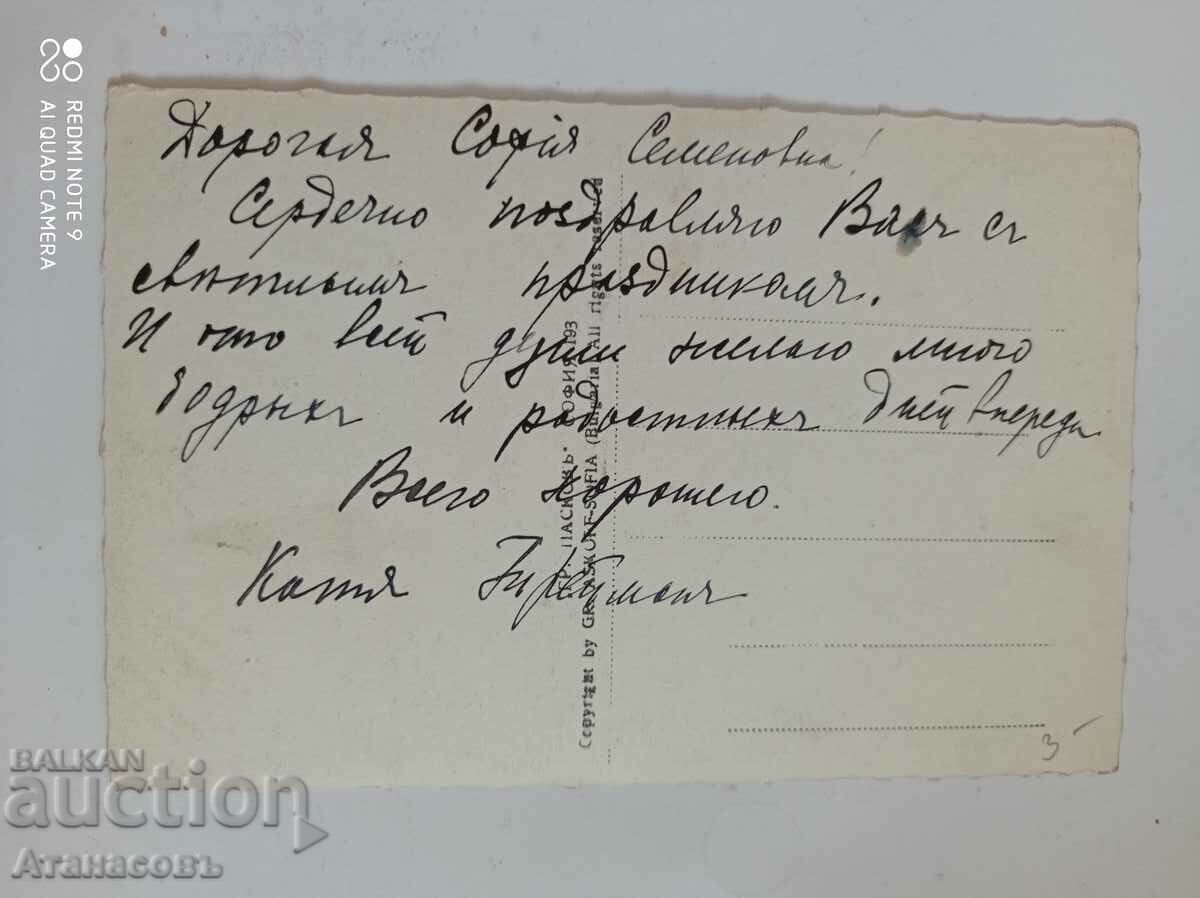 REDMI NOTE 9
AI QUAD CAMERA
Дорогая Софія Семеновна!
Сердечно поздравляю Васъ съ
свѣтлымъ праздникомъ.
И ото всей души желаю много
бодрыхъ и радостныхъ дней впереди
Всего хорошего.
Катя
ГР. ПАСКОВЪ" СОФИЯ 193
Copyright by GR. PASKOFF-SOFIA (Bulgaria) All rights reserved
3
BALKAN
auction
Атанасовъ